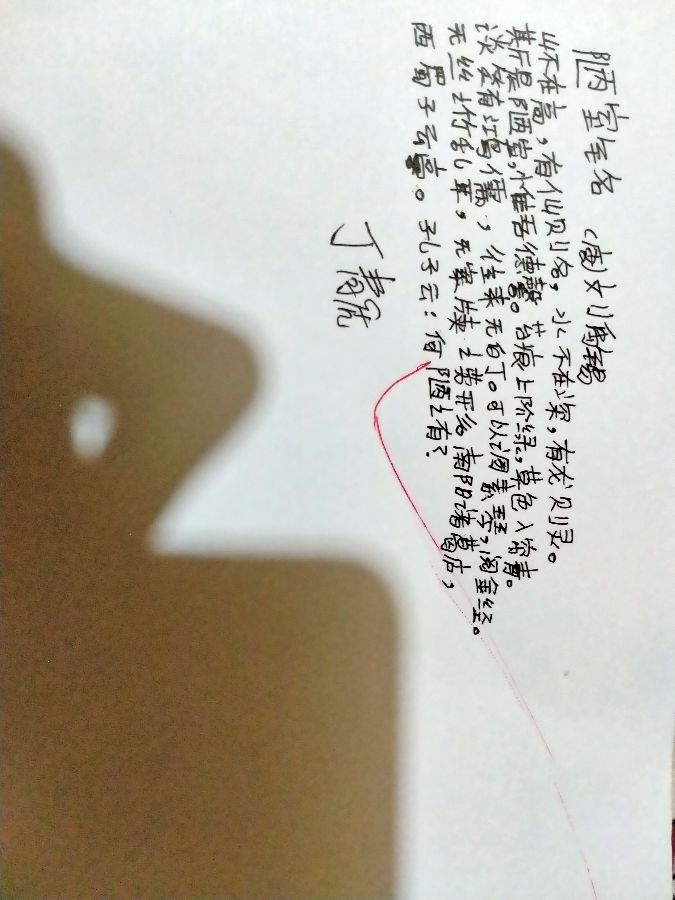 陋室铭 (唐)刘禹锡
山不在高，有仙则名，水不在深，有龙则灵。
斯是陋室，惟吾德馨。苔痕上阶绿，草色入帘青。
谈笑有鸿儒，往来无白丁。可以调素琴，阅金经。
无丝竹乱耳，无案牍之劳形。南阳诸葛庐，
西蜀子云亭。孔子云：何陋之有？
丁